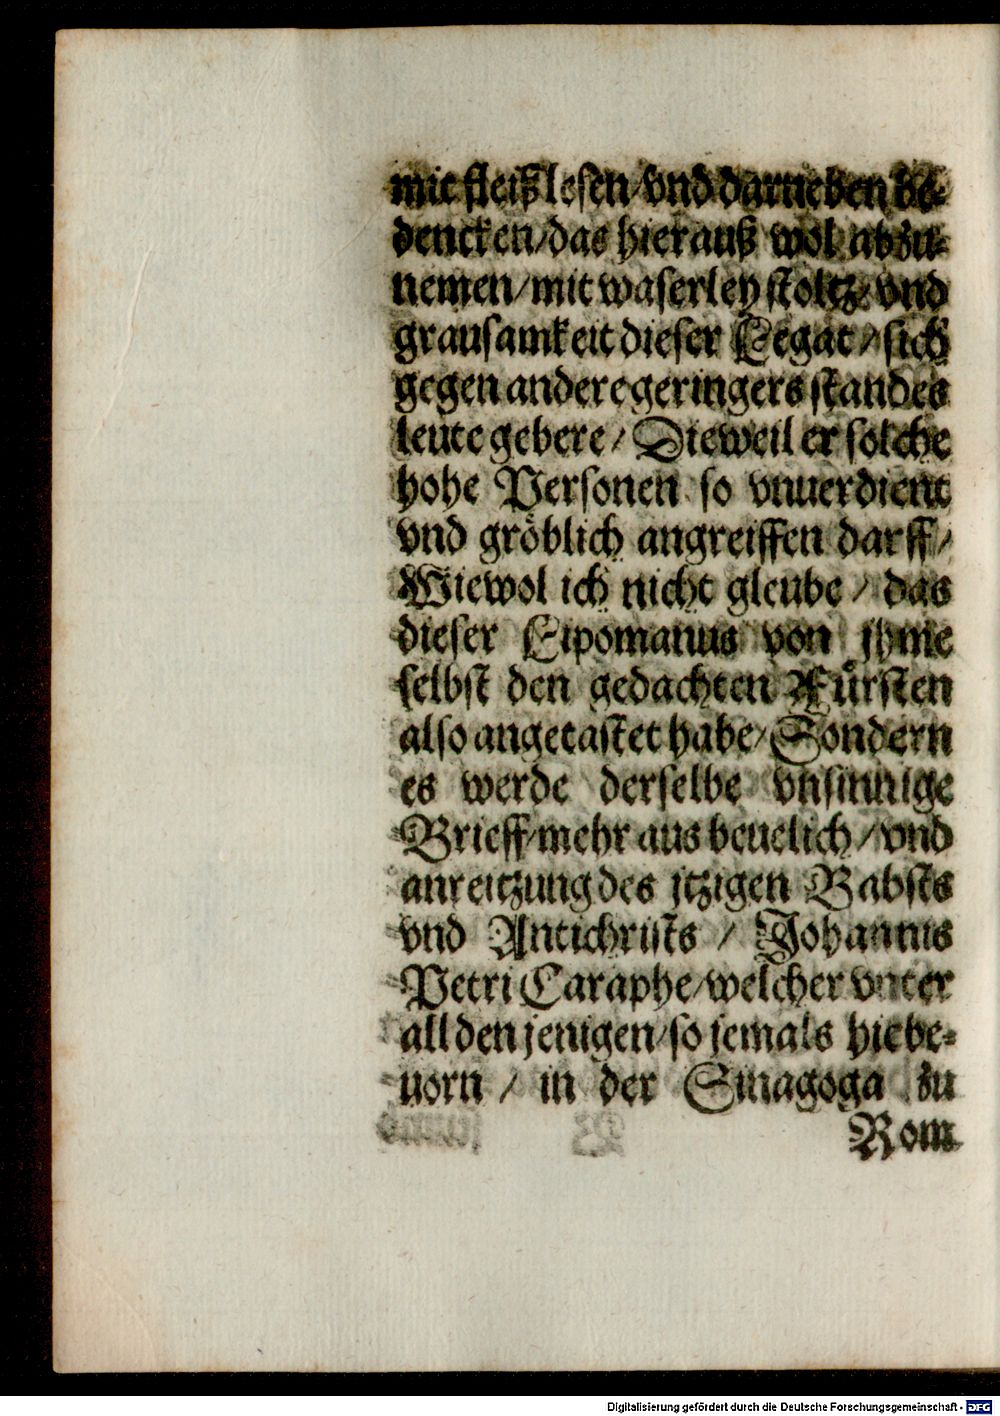 mit fleiß lesen/vnd darneben be-
dencken/das hierauß wol abzu-
nemen/mit waserley stoltz vnd
grausamkeit dieser Legat/sich
gegen andere geringers standes
leute gebere/Dieweil er solche
hohe Personen so vnuerdient
vnd gröblich angreiffen darff/
Wiewol ich nicht gleube/das
dieser Lipomanus von jhme
selbst den gedachten Fürsten
also angetastet habe/Sondern
es werde derselbe vnsinnige
Brieff/mehr aus beuelich/vnd
anreitzung des jtzigen Babsts
vnd Antichrists/Johannis
Petri Caraphe/welcher vnter
all den jenigen/so jemals hiebe-
uorn/in der Sinagoga zu
Rom
Digitalisierung gefördert durch die Deutsche Forschungsgemeinschaft - DFG